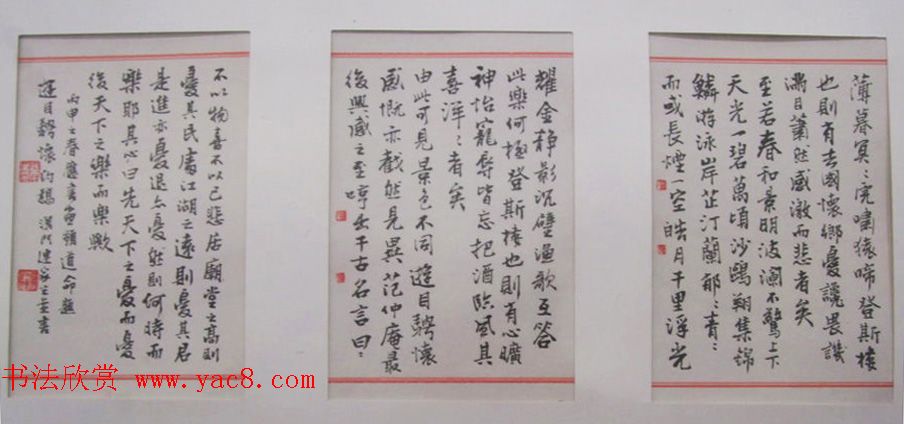 薄暮冥〻虎嘯猿啼登斯樓
也則有去國懷鄉憂讒畏譏
滿目蕭然感激而悲者矣
至若春和景明波瀾不驚上下
天光一碧萬頃沙鷗翔集錦
鱗游泳岸芷汀蘭郁〻青〻
而或長煙一空皓月千里浮光
耀金靜影沉璧漁歌互答
此樂何極登斯樓也則有心曠
神怡寵辱皆忘把酒臨風其
喜洋〻者矣
由此可見景色不同遊目騁懷
感慨亦截然見異范仲庵最
後興感之至哼出千古名言曰〻
不以物喜不以己悲居廟堂之高則
憂其民處江湖之遠則憂其君
是進亦憂退亦憂然則何時而
樂耶其心曰先天下之憂而憂
後天下之樂而樂歟
丙申之春應書画頻道命題
遊目騁懷連家生並書
书法欣赏 www.yac8.com